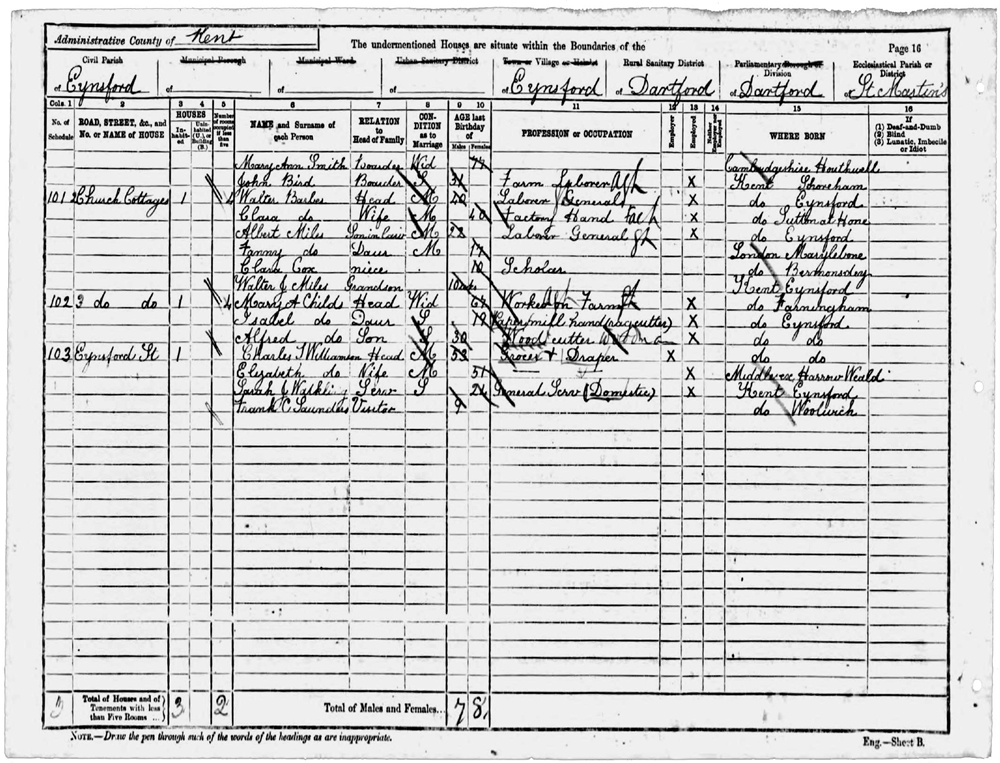 Administrative County of Kent
The undermentioned Houses are situate within the Boundaries of the
Page 16
Civil Parish of Eynsford
Municipal Borough of
Municipal Ward of
Urban Sanitary District of
Town or Village or Hamlet of Eynsford
Rural Sanitary District of Dartford
Parliamentary Borough or Division of Dartford
Ecclesiastical Parish or District of St. Martin's
Cols. 1 2 3 4 5 6 7 8 9 10 11 12 13 14 15 16
No. of Schedule
ROAD, STREET, &c., and No. or NAME of HOUSE
HOUSES
Inhabited
Uninhabited (U.), or Building (B.)
Number of rooms occupied if less than five
NAME and Surname of each Person
RELATION to Head of Family
CONDITION as to Marriage
AGE last Birthday of
Males Females
PROFESSION or OCCUPATION
Employer
Employed
Neither Employer nor Employed
WHERE BORN
If (1) Deaf-and-Dumb (2) Blind (3) Lunatic, Imbecile or Idiot
Mary Ann Smith Boarder Wid 77 Cambridgeshire
John Bird Boarder S 31 Farm Laborer X Kent Shoreham
101 2 Church Cottages 1 4 Walter Head M 40 Laborer General X do Eynsford
Clara do Wife M 40 Factory Hand X do Sutton at Hone
Albert Miles Son in law M 22 Laborer General X do Eynsford
Fanny do Daur M 17 London Marylebone
Clara Cox niece 10 Scholar do Bermondsey
Walter J Miles Grandson Kent Eynsford
102 3 do do 1 4 Mary A Childs Head Wid 67 Worked on Farm X do Farningham
Isabel do Daur S 19 Paper mill hand (rag cutter) X do Eynsford
Alfred do Son S 30 Wood cutter X do do
103 Eynsford St 1 Charles T Williamson Head M 53 Grocer & Draper X do do
Elizabeth do Wife M 51 Middlesex Harrow Weald
Sarah J Serv S General Serv (Domestic) X Kent Eynsford
Frank C Saunders Visitor 9 do Woolwich
3 Total of Houses and of Tenements with less than Five Rooms 3 2 Total of Males and Females... 7 8
NOTE.—Draw the pen through such of the words of the headings as are inappropriate.
Eng.—Sheet B.